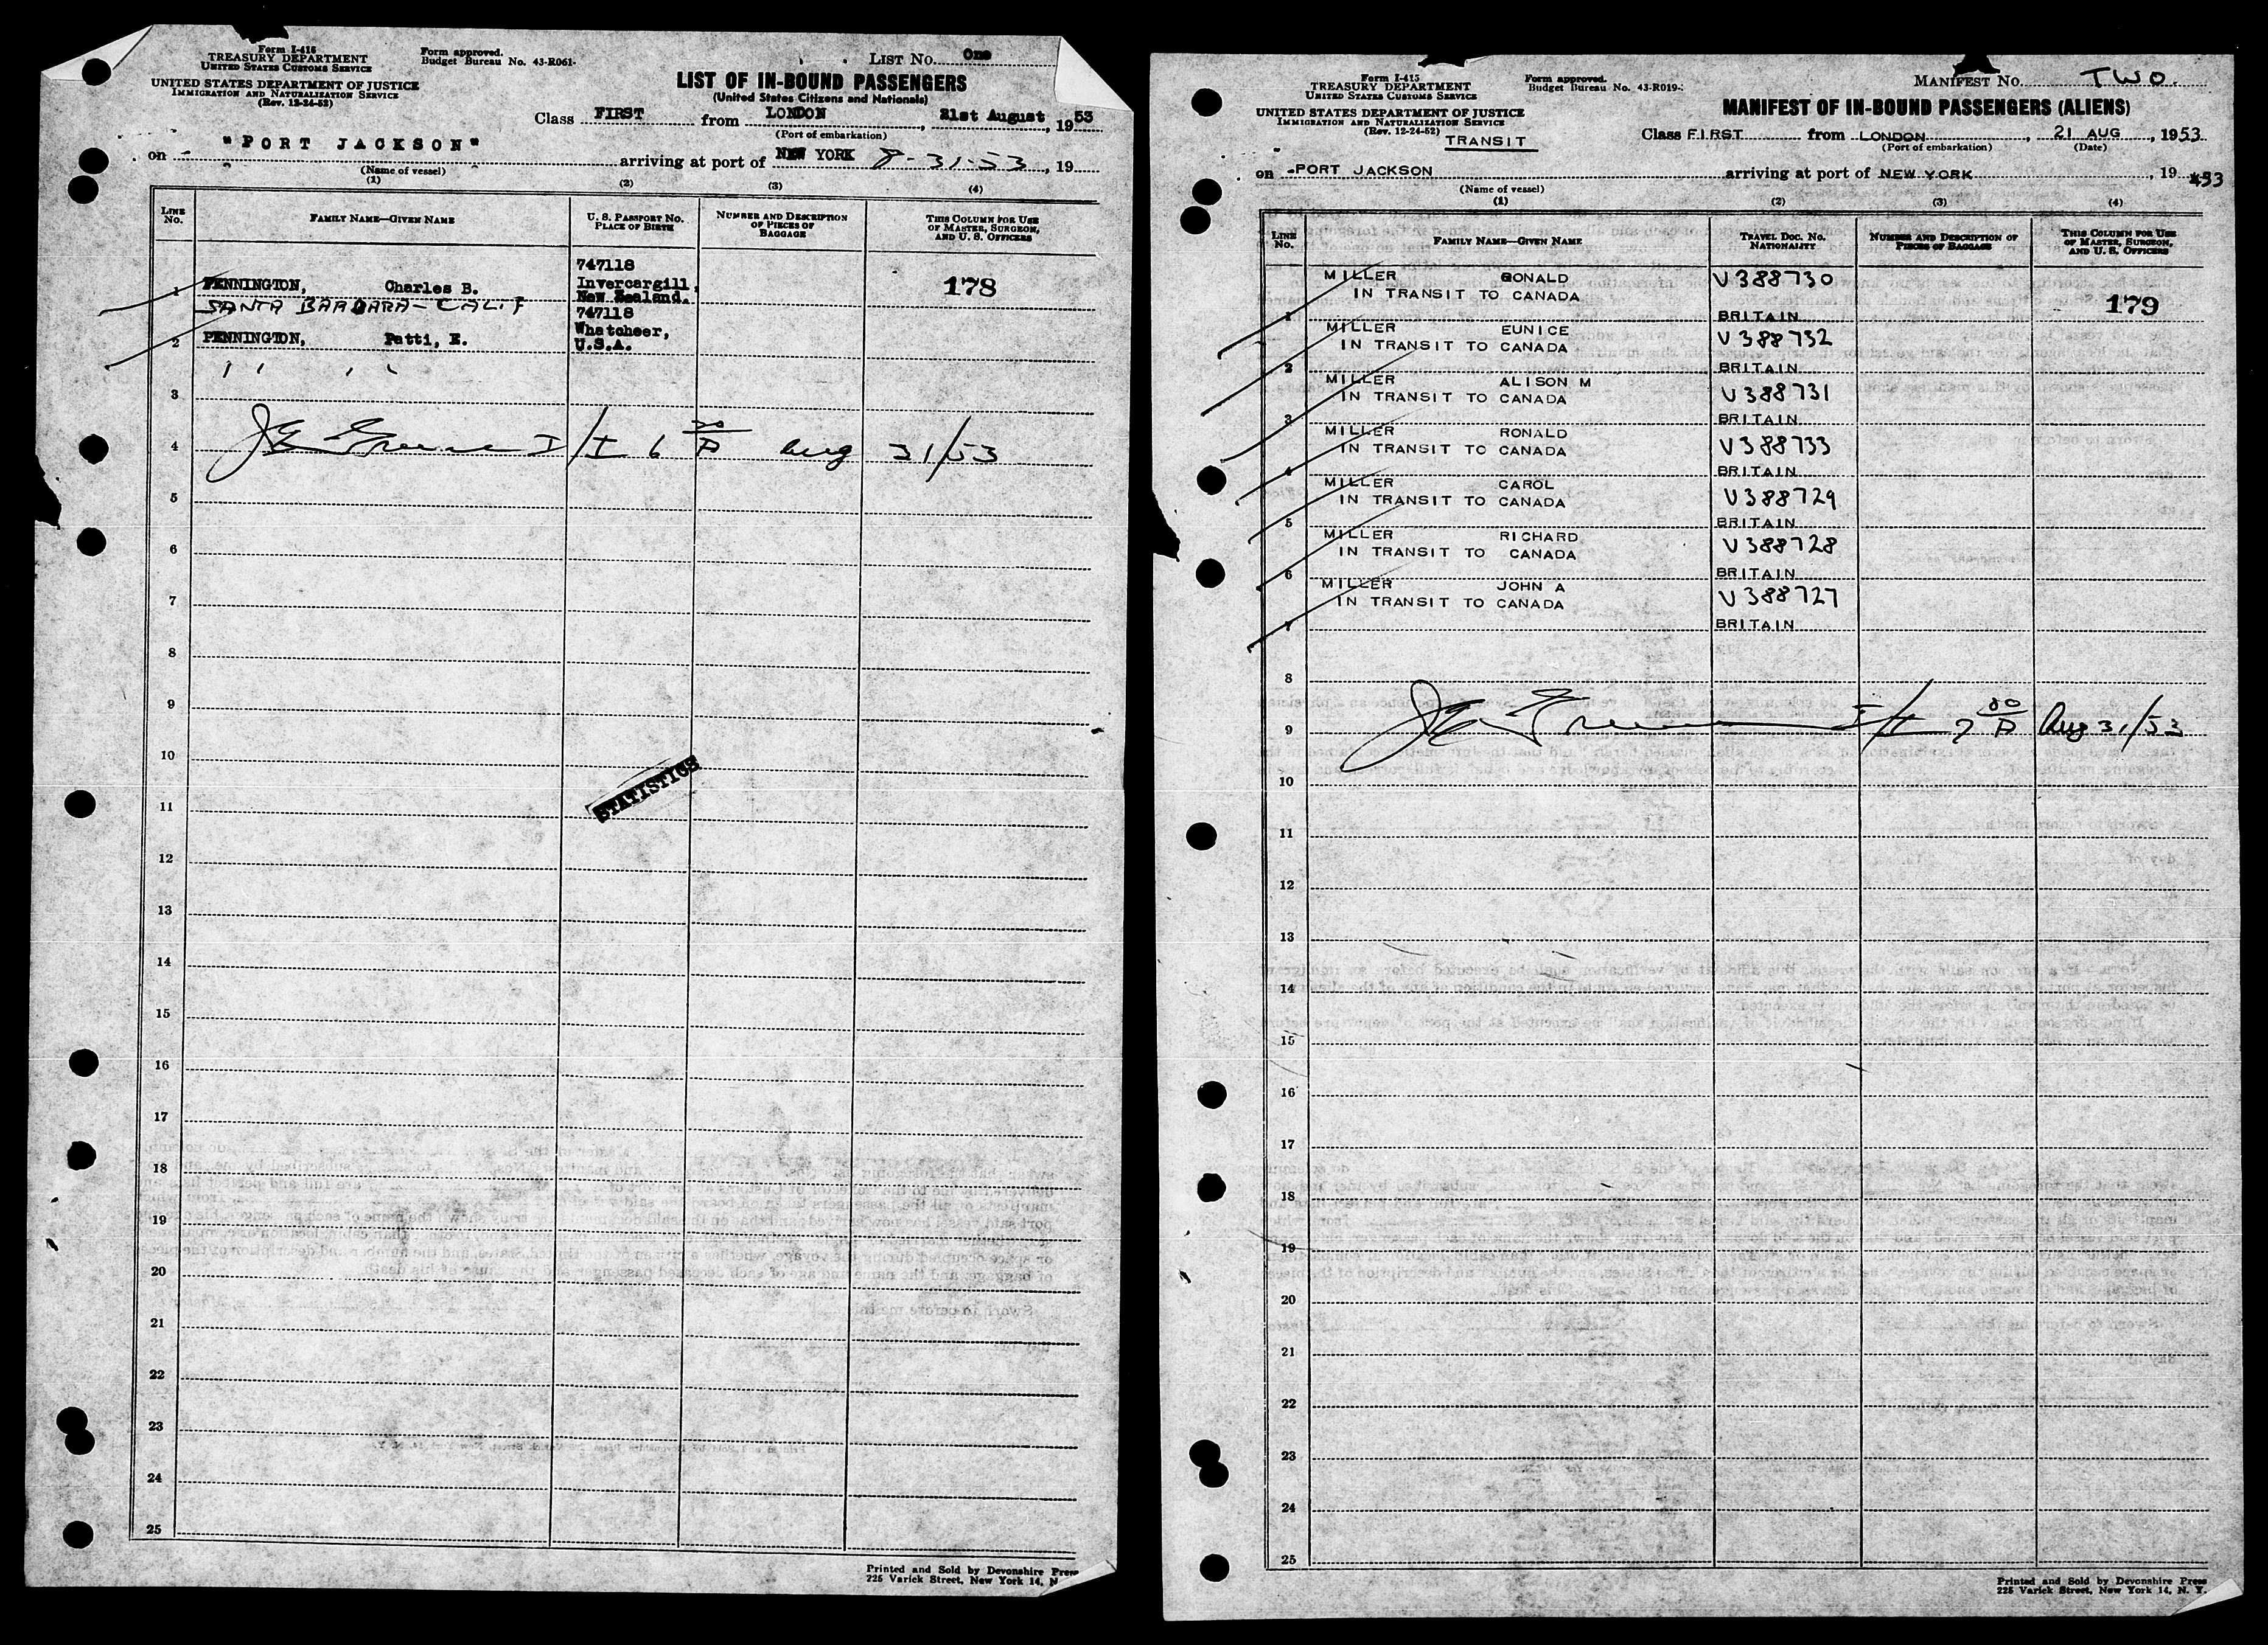 Form I-416
TREASURY DEPARTMENT
UNITED STATES CUSTOMS SERVICE
UNITED STATES DEPARTMENT OF JUSTICE
IMMIGRATION AND NATURALIZATION SERVICE
(Rev. 12-24-52)
Form approved.
Budget Bureau No. 43-R061-
LIST NO. One
LIST OF IN-BOUND PASSENGERS
(United States Citizens and Nationals)
Class FIRST from LONDON, 21st August, 1953
(Port of embarkation)
on "PORT JACKSON" arriving at port of NEW YORK 8-31-53, 19
(Name of vessel)
(1) (2) (3) (4)
LINE NO.
FAMILY NAME—GIVEN NAME
U. S. PASSPORT NO.
PLACE OF BIRTH
NUMBER AND DESCRIPTION
OF PIECES OF
BAGGAGE
THIS COLUMN FOR USE
OF MASTER, SURGEON,
AND U. S. OFFICERS
747118
1 PENNINGTON, Charles B. Invercargill, New Zealand. 178
SANTA BARBARA-CALIF
747118
2 PENNINGTON, Patti, E. Whatcheer, U.S.A.
" "
3
4 I/I 6 30/P Aug 31/53
5
6
7
8
9
10
STATISTICS
11
12
13
14
15
16
17
18
19
20
21
22
23
24
25
Printed and Sold by Devonshire Press
225 Varick Street, New York 14, N
Form I-415
TREASURY DEPARTMENT
UNITED STATES CUSTOMS SERVICE
UNITED STATES DEPARTMENT OF JUSTICE
IMMIGRATION AND NATURALIZATION SERVICE
(Rev. 12-24-52)
TRANSIT
Form approved.
Budget Bureau No. 43-R019-
MANIFEST NO. TWO.
MANIFEST OF IN-BOUND PASSENGERS (ALIENS)
Class FIRST from LONDON, 21 AUG, 1953
(Port of embarkation) (Date)
on PORT JACKSON arriving at port of NEW YORK, 19 53
(Name of vessel)
(1) (2) (3) (4)
LINE NO.
FAMILY NAME—GIVEN NAME
TRAVEL DOC. NO.
NATIONALITY
NUMBER AND DESCRIPTION OF
PIECES OF BAGGAGE
THIS COLUMN FOR USE
OF MASTER, SURGEON,
AND U. S. OFFICERS
MILLER DONALD V388730
IN TRANSIT TO CANADA 179
1 BRITAIN
MILLER EUNICE V388732
IN TRANSIT TO CANADA
2 BRITAIN
MILLER ALISON M V388731
IN TRANSIT TO CANADA
3 BRITAIN
MILLER RONALD V388733
IN TRANSIT TO CANADA
4 BRITAIN
MILLER CAROL V388729
IN TRANSIT TO CANADA
5 BRITAIN
MILLER RICHARD V388728
IN TRANSIT TO CANADA
6 BRITAIN
MILLER JOHN A V388727
IN TRANSIT TO CANADA
7 BRITAIN
8
9 Aug 31/53
10
11
12
13
14
15
16
17
18
19
20
21
22
23
24
25
Printed and Sold by Devonshire Press
225 Varick Street, New York 14, N. Y.